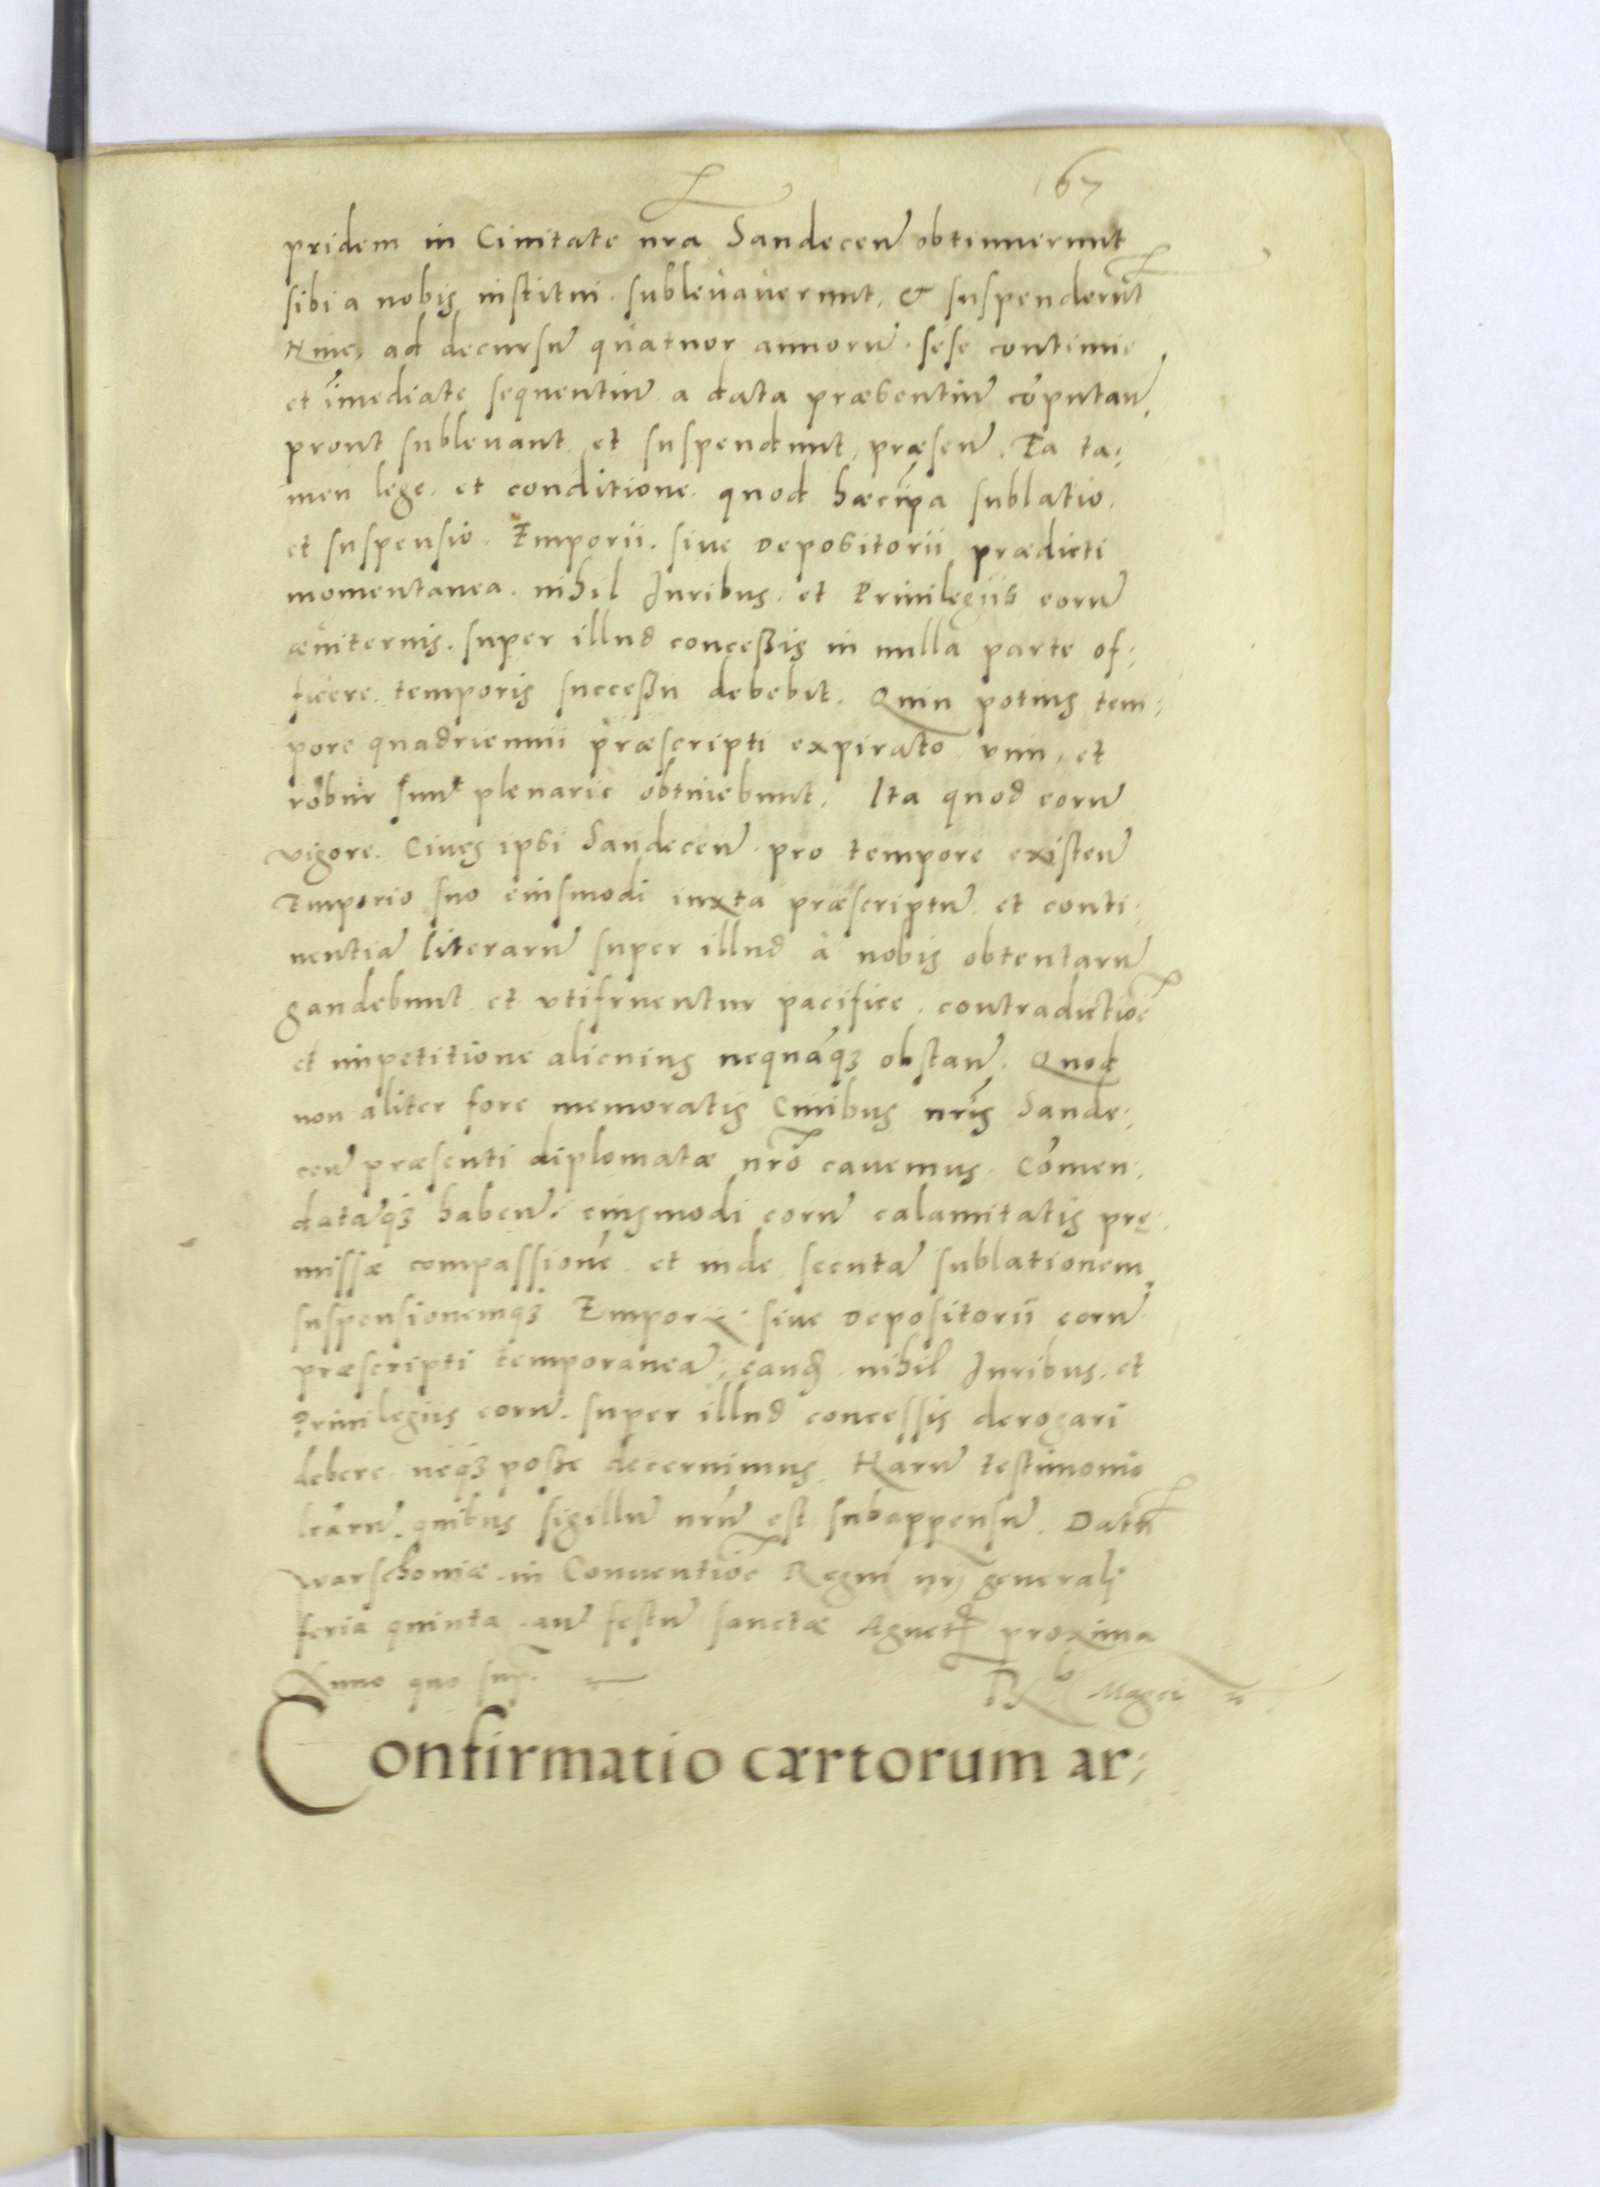 167
pridem in Ciuitate nrã Sandeceñ obtinuerunt
sibi a nobis institui. subleuauerunt, & suspenderũt
Hinc, ad decursũ quatuor annorũ. sese continue
et ĩmediate sequentiũ a data præsentiũ cõputañ,
prout subleuant et suspendunt, præseñ. Ea ta:
men lege. et conditione. quod hæc ipa sublatio.
et suspensio. Emporii. siue Depositorii prædicti
momentanea. nihil Juribus. et Priuilegiis eorũ
æuiternis. super illud conceßis in nulla parte of:
ficere. temporis succeßu debebit. Quin potius tem:
pore quadriennii præscripti expirato vim, et
robur suũ plenarie obtinebunt. Ita quod eorũ
vigore. Ciues ipsi Sandeceñ pro tempore existeñ
Emporio suo eiusmodi iuxta præscriptũ et conti:
nentiã literarũ super illud à nobis obtentarũ
gaudebunt et vtifruentur pacifice. contradictiõe
et impetitione alicuius nequãq3 obstañ. Quod
non aliter fore memoratis Ciuibus nrĩs Sande:
ceñ præsenti diplomatæ nrõ cauemus. Cõmen:
datãq3 habeñ. eiusmodi eorũ calamitatis prę:
missæ compassionẽ et inde secutã sublationem
suspensionemq3 Emporii siue Depositorii eorũ
præscripti temporaneã, eañd nihil Juribus, et
Priuilegiis eorũ. super illud concessis derogari
debere neq3 posse decernimus. Harũ testimonio
lrãrũ quibus sigillũ nrũ est subappensũ. Datũ
warschouiæ in Conuentiõe Regni nrj generalj
feria quinta. añ festũ sanctæ Agnet[is] proxima
Anno quo sup[ra].
Confirmatio cærtorum ar: